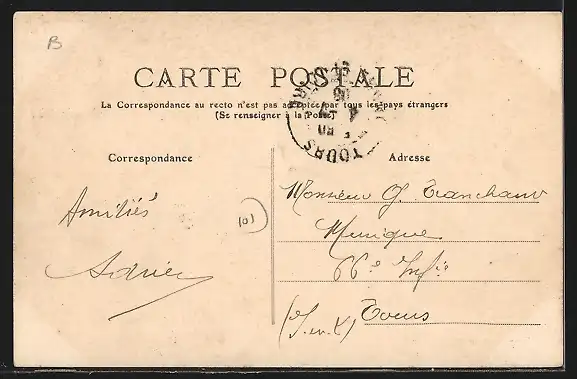 B
CARTE POSTALE
La Correspondance au recto n'est pas acceptée par tous les pays étrangers
(Se renseigner à la Poste)
TOURS
Correspondance
Adresse
Amitiés
Monsieur G. Tranchant
101
Musique
66e Infie
Tours
(I.-et-L.)